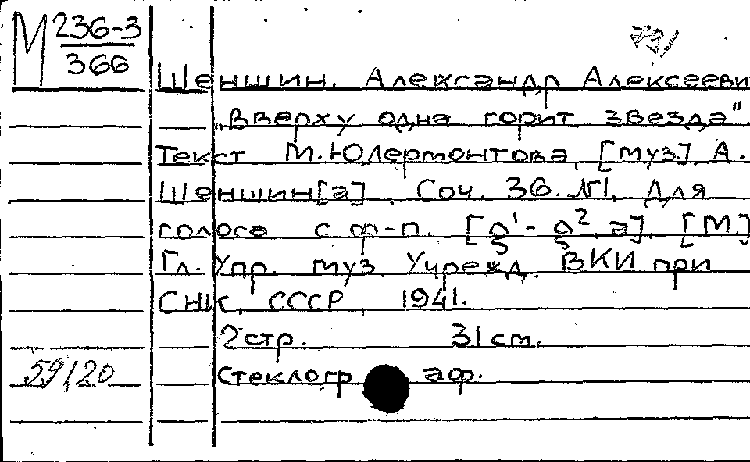 М 236-3
366
Шеншин, Александр Алексееви
„Вверху одна горит звезда"
Текст М.Ю.Лермонтова, [муз.] А.
Шеншин[а]. Соч. 36. №1. Для
голоса с ф-п. [d¹ - g², a]. [М]
Гл. Упр. муз. Учрежд. ВКИ при
СНК СССР, 1941.
2 стр. 31 см.
59120 Стеклограф.